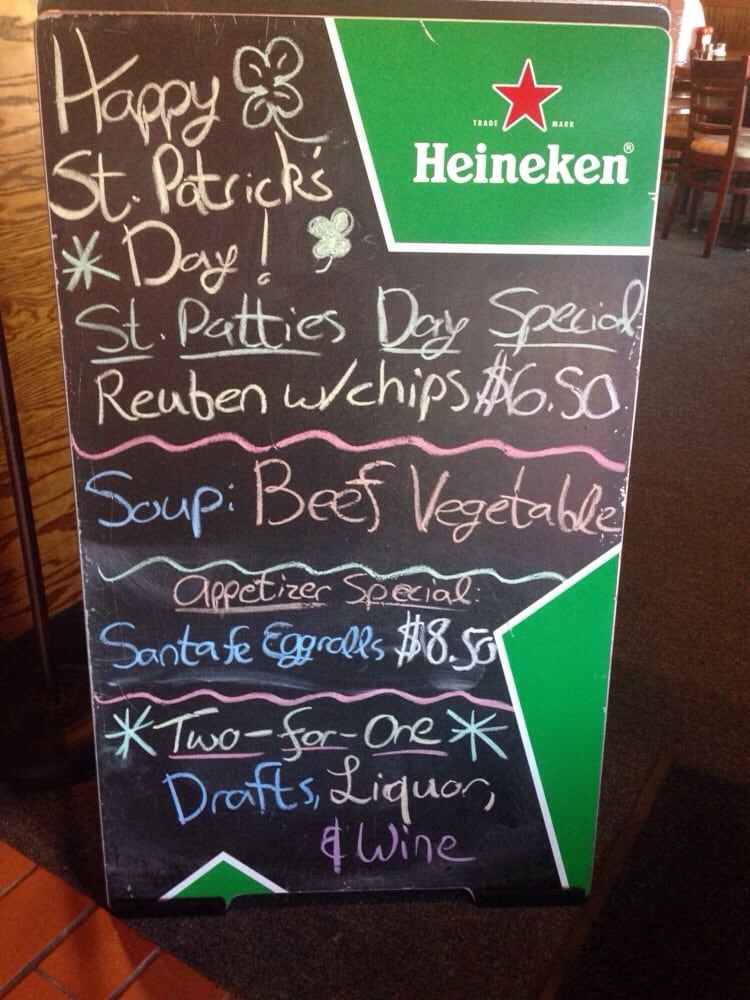 Happy
St. Patrick's
* Day!
TRADE MARK
Heineken®
St. Patties Day Special
Reuben w/chips $6.50
Soup: Beef Vegetable
Appetizer Special:
Santa fe Eggrolls $8.50
* Two-for-One *
Drafts, Liquor,
& Wine